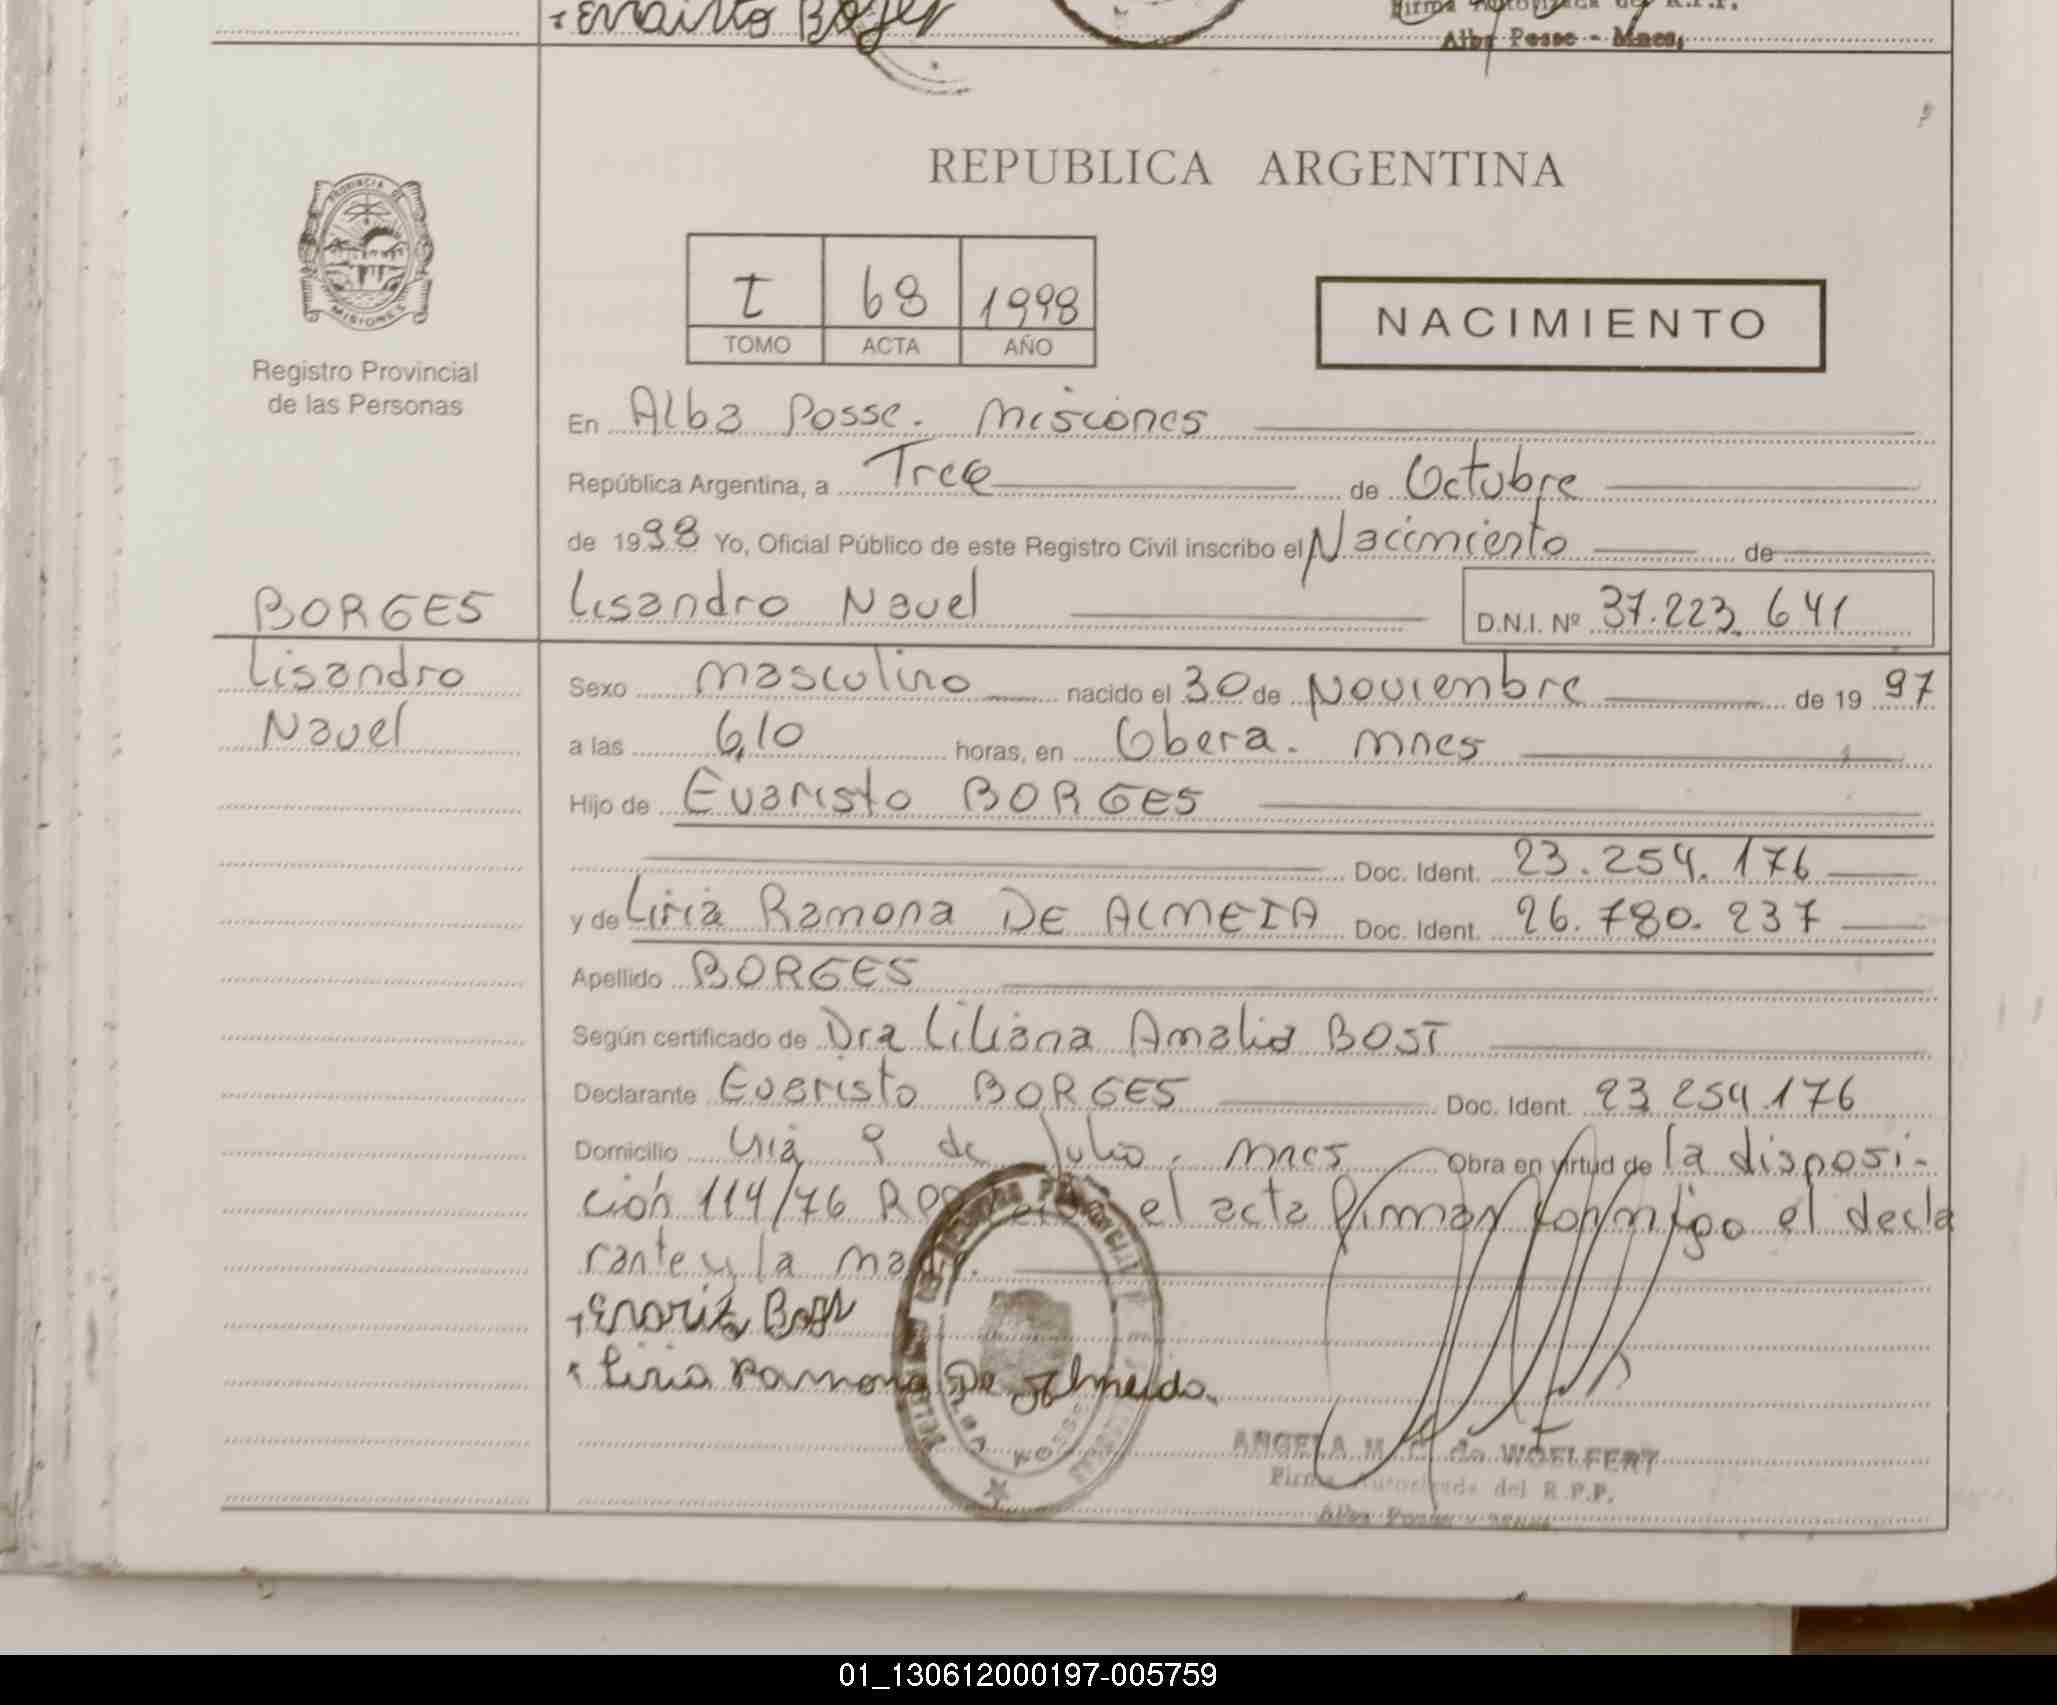 Firma Autorizada del R.P.P.
Alba Posse - Mnes,
PROVINCIA DE
MISIONES
Registro Provincial
de las Personas
REPUBLICA ARGENTINA
t 68 1998
TOMO ACTA AÑO
NACIMIENTO
En Alba Posse. Misiones
República Argentina, a Trece de Octubre
de 1998 Yo, Oficial Público de este Registro Civil inscribo el Nacimiento de
BORGES Lisandro Nauel D.N.I. Nº 37.223 641
Lisandro Sexo masculino nacido el 30 de Noviembre de 19 97
Nauel a las 6,10 horas, en Obera. mnes
Hijo de Evaristo BORGES
Doc. Ident. 23.254.176
y de Liria Ramona DE ALMEIA Doc. Ident. 26.780.237
Apellido BORGES
Según certificado de Dra Liliana Amalia BOST
Declarante Evaristo BORGES Doc. Ident. 23 254.176
Domicilio 9 de Julio. mnes Obra en virtud de la disposi-
ción 114/76 el acta firman conmigo el decla
rante y la
Liria Ramona De Almeida.
ANGELA M. C. de WOELFERT
Firma Autorizada del R.P.P.
Alba Posse - Mnes.
01_130612000197-005759